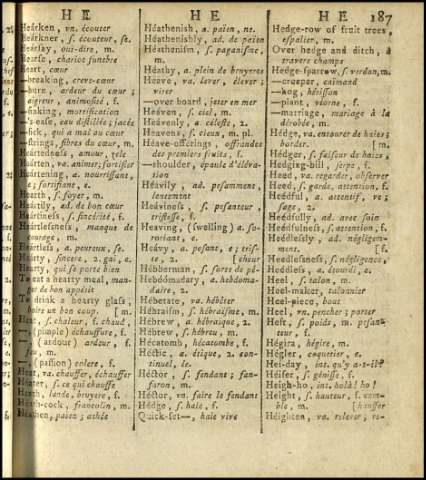 H E
H E
H E 187
Heárken, vn. écouter
Heárkner, ſ. écouteur, ſe.
Heárſay, oui-dire, m.
Hearſe, chariot funebre
Heart, cœur
—breaking, creve-cœur
—burn, ardeur du cœur;
aigreur, animoſité, f.
—ſtrings, fibres du cœur, m.
Heártedneſs, amour, zele
Heárten, va. animer; fortifier
Heártening, a. nourriſſant,
e; fortifiant, e.
Hearth, ſ. foyer, m.
Heártily, ad. de bon cœur
Heártineſs, ſ. ſincérité, f.
Heártleſsneſs, manque de
courage, m.
Heártleſs, a. peureux, ſe.
Hearty, ſincere, 2. gai, e.
Hearty, qui ſe porte bien
To eat a hearty meal, manger
de bon appétit
To drink a hearty glaſs,
boire un bon coup. [m.
Heat, ſ. chaleur, f. chaud,
—, (pimple) échauffure, f.
—, (ardour) ardeur, f.
feu, m.
—, (paſſion) colere, f.
Heat, va. chauffer, échauffer
Heáter, ſ. ce qui chauffe
Heath, lande, bruyere, f.
Heath-cock, francolin, m.
Heáthen, païen; athée
Heáthenish, a. païen, ne.
Heátheniſhly, ad. de païen
Heátheniſm, ſ. paganiſme,
m.
Héathy, a. plein de bruyeres
Heave, va. lever, élever;
virer
—over board, jeter en mer
Heáven, ſ. ciel, m.
Heávenly, a. céleſte, 2.
Heavens, ſ. cieux, m. pl.
Heave-offerings, offrandes
des premiers fruits, f.
—shoulder, épaule d'élévation
Heávily, ad. peſamment,
lentement
Heávineſs, ſ. peſanteur
triſteſſe, f.
Heaving, (ſwelling) a. ſouriant, e.
Heávy, a. peſant, e; triſte,
2.
Hébberman, ſ. ſorte de pêcheur
Hebdómadary, a. hebdomadaire,
2.
Hébetate, va. hébéter
Hébraiſm, ſ. hébraïſme, m.
Hébrew, a. hébraïque, 2.
Hébrew, ſ. hébreu, m.
Hécatomb, hécatombe, f.
Héctic, a. étique, 2. continuel,
le.
Héctor, ſ. fendant; fanfaron,
m.
Héctor, va. faire le fendant
Hédge, ſ. haie, f.
Quick-ſet—, haie vive
Hedge-row of fruit trees,
eſpalier, m.
Over hedge and ditch, à
travers champs
Hedge-ſparrow, ſ. verdon, m.
—creeper, caimand
—hog, hériſſon
—plant, viorne, f.
—marriage, mariage à la
dérobée, m.
Hédge, va. entourer de haies;
border. [m.
Hédger, ſ. faiſeur de haies,
Hédging-bill, ſerpe, f.
Heed, va. regarder, obſerver
Heed, ſ. garde, attention, f.
Heédful, a. attentif, ve;
ſage, 2.
Heédfully, ad. avec ſoin
Heédfulneſs, ſ. attention, f.
Heédleſsly, ad. négligemment.
[f.
Heedleſsneſs, ſ. négligence,
Heédleſs, a. étourdi, e.
Heel, ſ. talon, m.
Heel-maker, talonnier
Heel-piece, bout
Heel, vn. pencher; porter
Heft, ſ. poids, m. peſanteur,
f.
Hégira, hégire, m.
Hégler, coquetier, e.
Hei-day, int. qu'y a-t-il?
Héifer, ſ. géniſſe, f.
Heigh-ho, int. holà! ho!
Height, ſ. hauteur, f. comble,
m. [hauſſer
Héighten, va. relever; re-